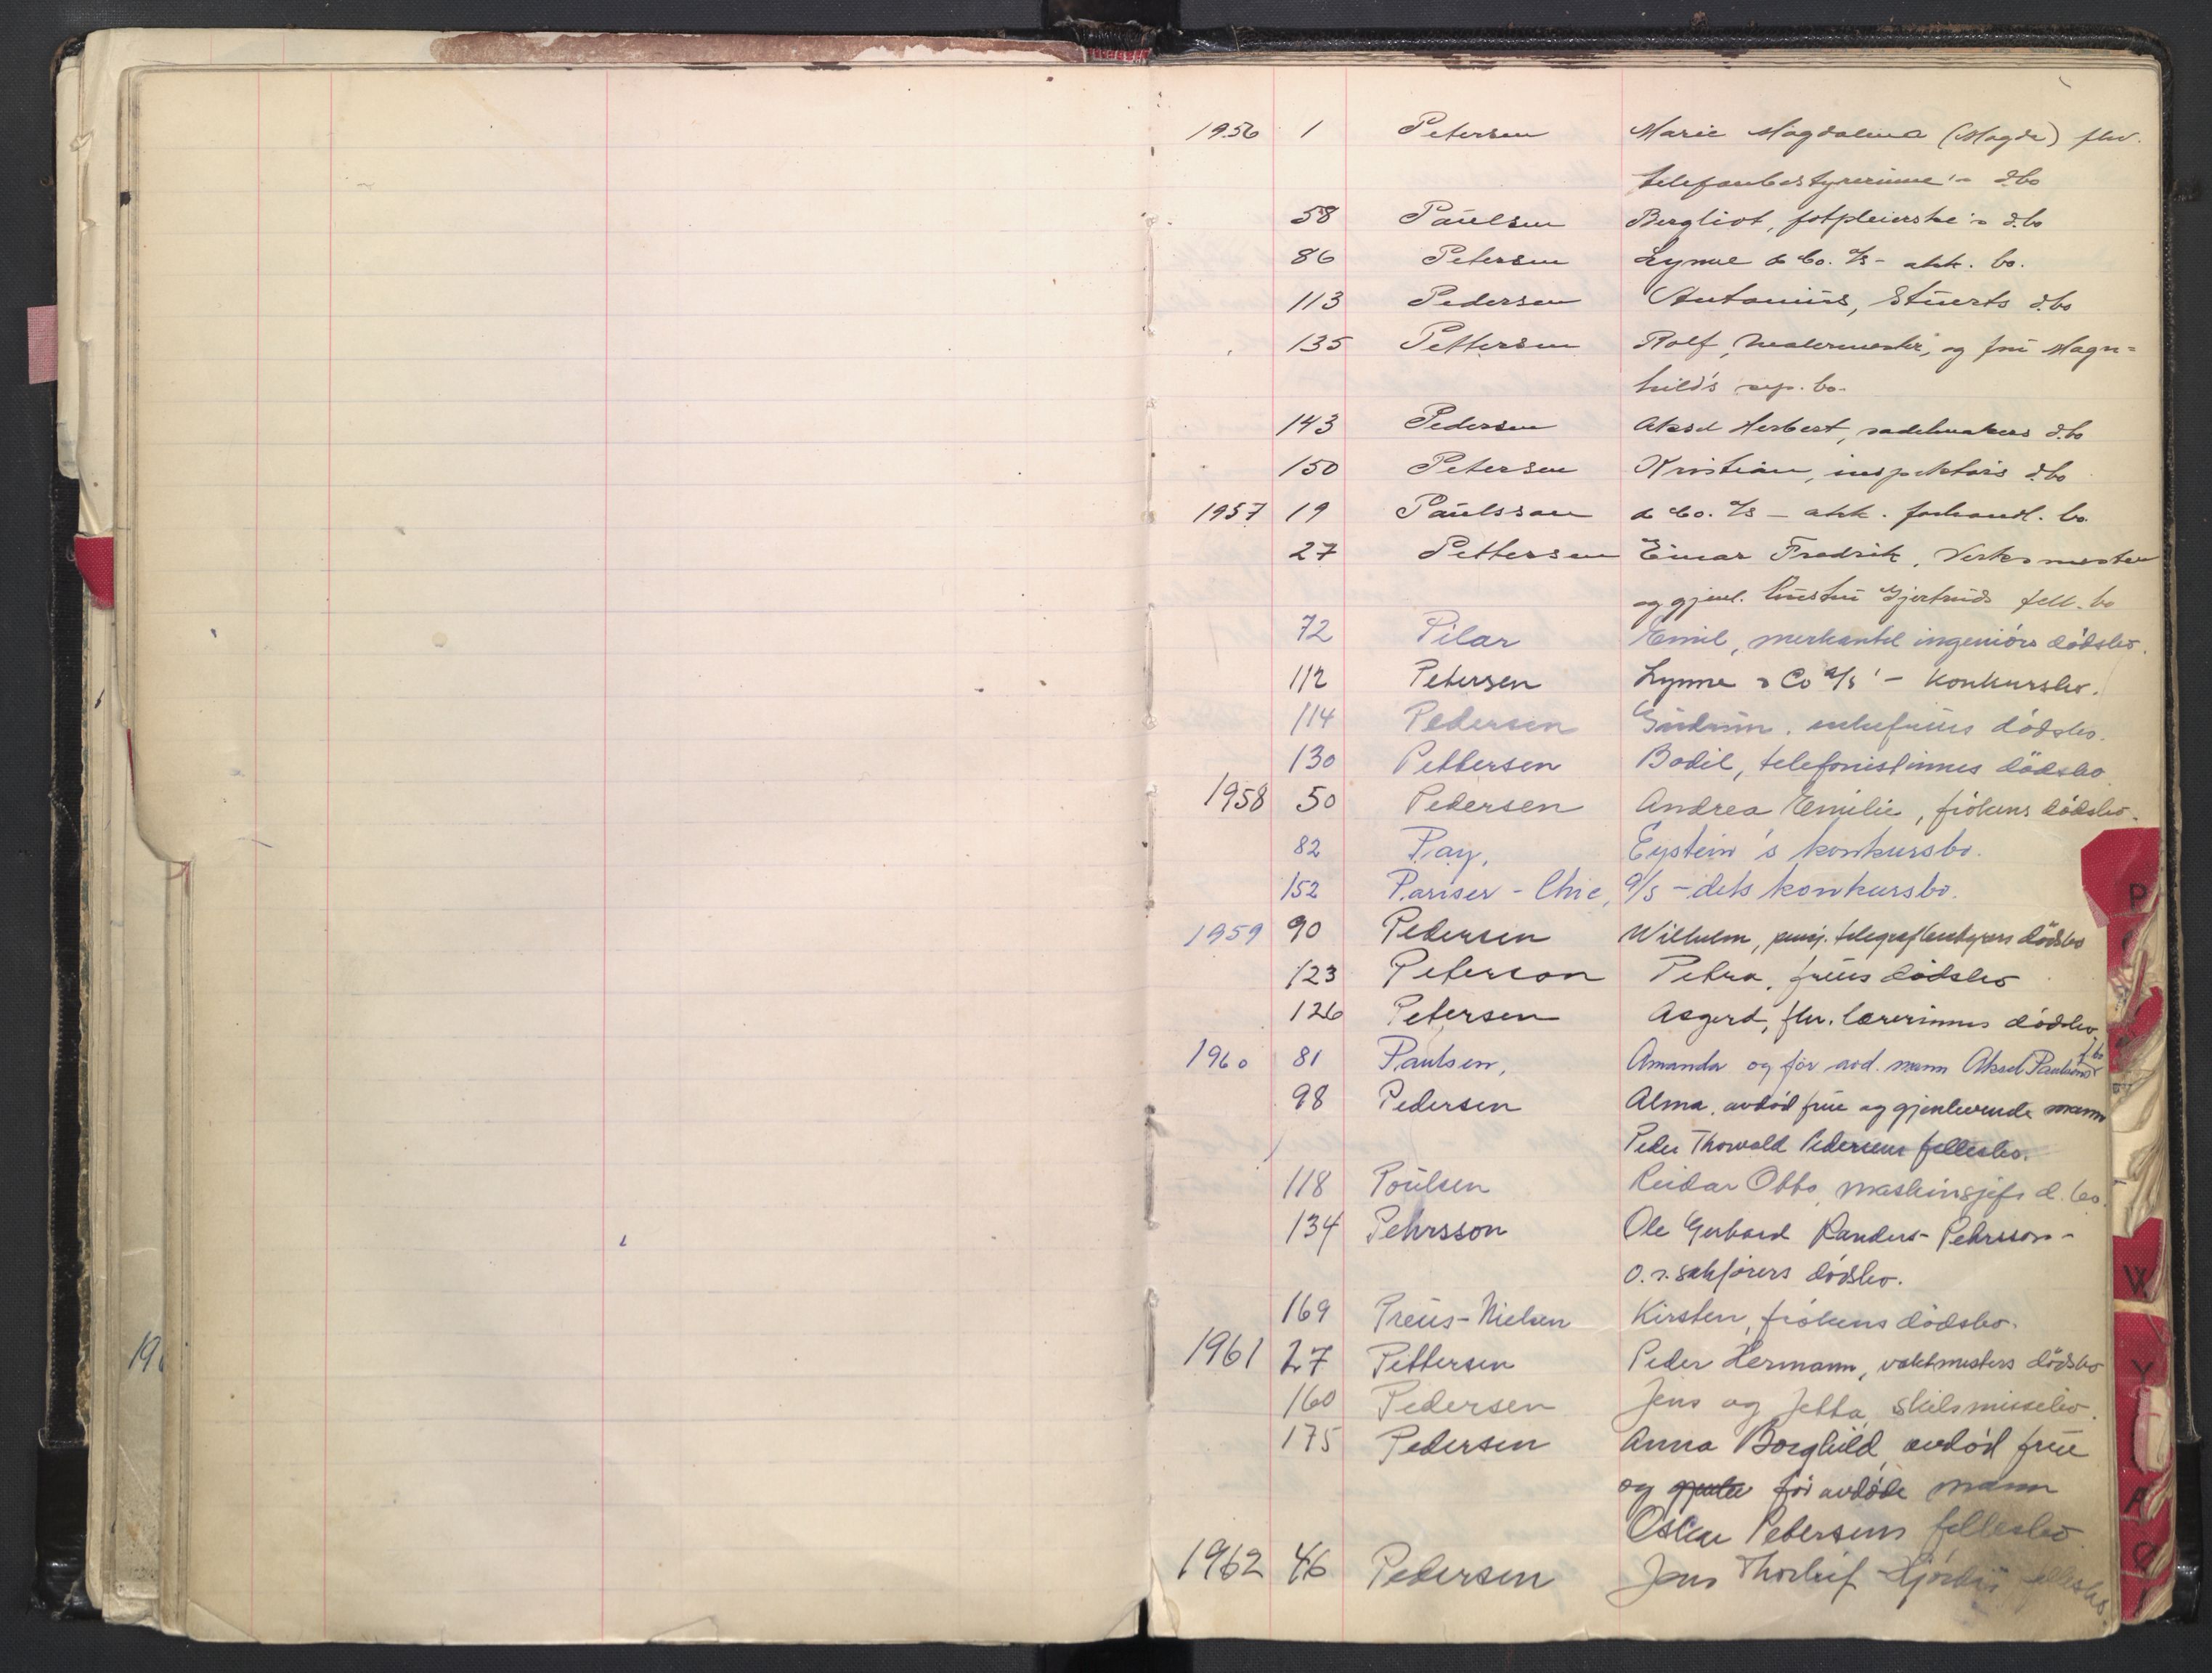 1956 1 Petersen Marie Magdalena (Magda) fhv.
telefonbestyrerinne's d.bo
58 Paulsen Bergliot, fotpleierske's d.bo
86 Petersen Lynne & Co. A/S - akk. bo.
113 Pedersen Antonius, Stuerts d.bo
135 Pettersen Rolf, malermester, og fru Magn=
hild's sep. bo.
143 Pedersen Aksel Herbert, sadelmakers d.bo
150 Petersen Kristian, inspektørs d.bo
1957 19 Paulsson & Co. A/S - akk. forhandl. bo.
27 Pettersen Einar Fredrik, Verksmester
og gjenl. hustru Gjertruds fell. bo
72 Pilar Emil, merkantil ingeniørs dødsbo.
112 Petersen Lynne & Co A/S' - konkursbo.
114 Pedersen Gudrun, enkefrues dødsbo.
130 Pettersen Bodil, telefonistinnes dødsbo
1958 50 Pedersen Andrea Emilie, frøkens dødsbo.
82 Pay, Eystein's konkursbo.
152 Pariser-Chic, A/S - dets konkursbo.
1959 90 Pedersen Wilhelm, pensj. telegrafbestyrers dødsbo
123 Peterson Petra, frues dødsbo
126 Petersen Asgerd, fhv. lærerinnes dødsbo
1960 81 Paulsen, Amanda og før avd. mann Aksel Paulsens f.bo
98 Pedersen Alma, avdød frue og gjenlevende mann
Peder Thorvald Pedersens fellesbo.
118 Poulsen Reidar Otto, maskinsjefs d.bo.
134 Pehrsson Ole Gerhard Randers-Pehrsson -
o.r.sakførers dødsbo.
169 Preus-Nielsen Kirsten, frøkens dødsbo.
1961 27 Pettersen Peder Hermann, vaktmesters dødsbo
160 Pedersen Jens og Jetta, skilsmissebo.
175 Pedersen Anna Borghild, avdød frue
og før avdøde mann
Oskar Pedersens fellesbo
1962 46 Pedersen Jens Thorleif Hjørdis fellesbo.
196
P
V
Y
A
Ø